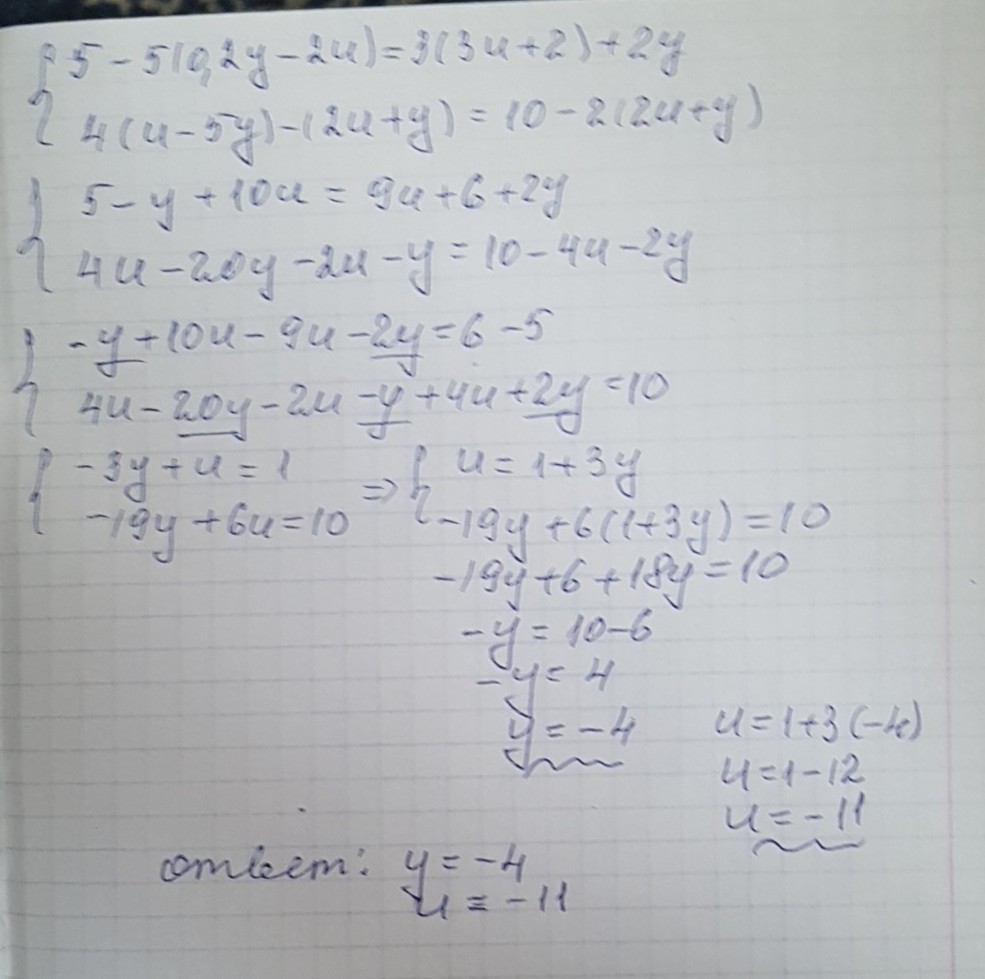 { 5 - 5(0,2y - 2u) = 3(3u + 2) + 2y
4(u - 5y) - (2u + y) = 10 - 2(2u + y)
{ 5 - y + 10u = 9u + 6 + 2y
4u - 20y - 2u - y = 10 - 4u - 2y
{ - y + 10u - 9u - 2y = 6 - 5
4u - 20y - 2u - y + 4u + 2y = 10
{ - 3y + u = 1 => { u = 1 + 3y
- 19y + 6u = 10 - 19y + 6(1 + 3y) = 10
- 19y + 6 + 18y = 10
- y = 10 - 6
- y = 4
y = - 4 u = 1 + 3(-4)
u = 1 - 12
u = - 11
ответ: y = - 4
u = - 11